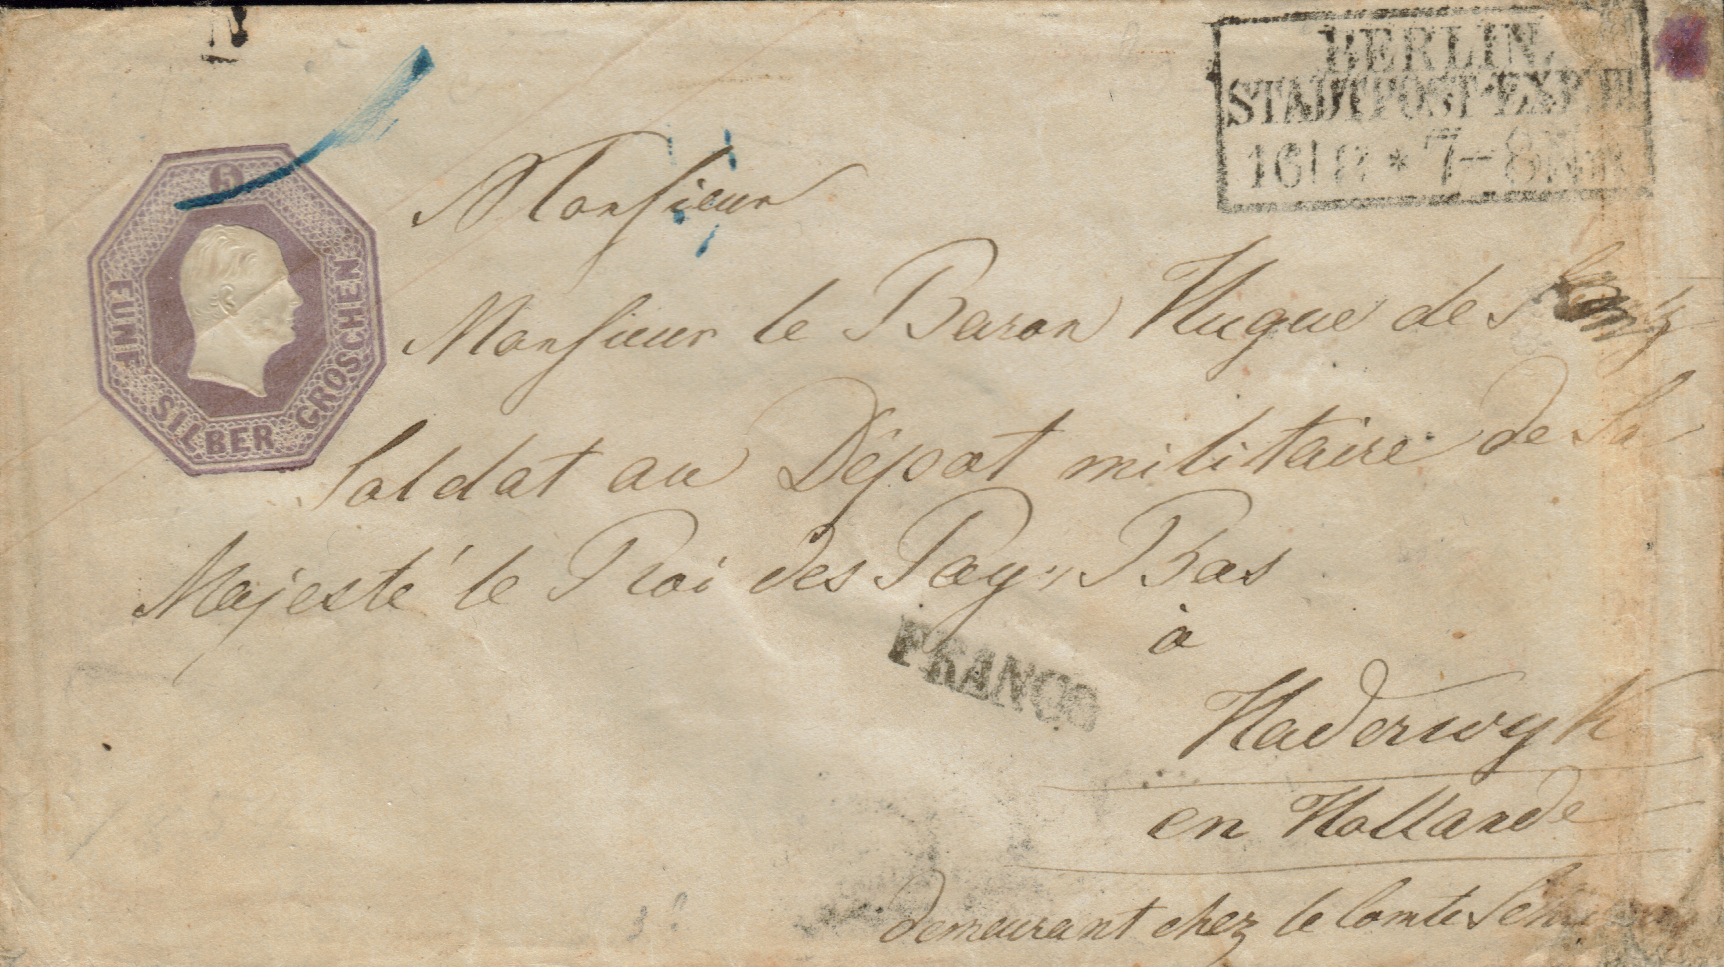 BERLIN,
STADTPOST-EXPED.
16 12 * 7-8 N
5
FÜNF SILBER GROSCHEN
Monsieur
Monsieur le Baron Hugue de
Soldat au Dépot militaire de Sa
Majesté le Roi des Pays Bas
à
FRANCO
Haderwyk
en Hollande
demeurant chez le Comte